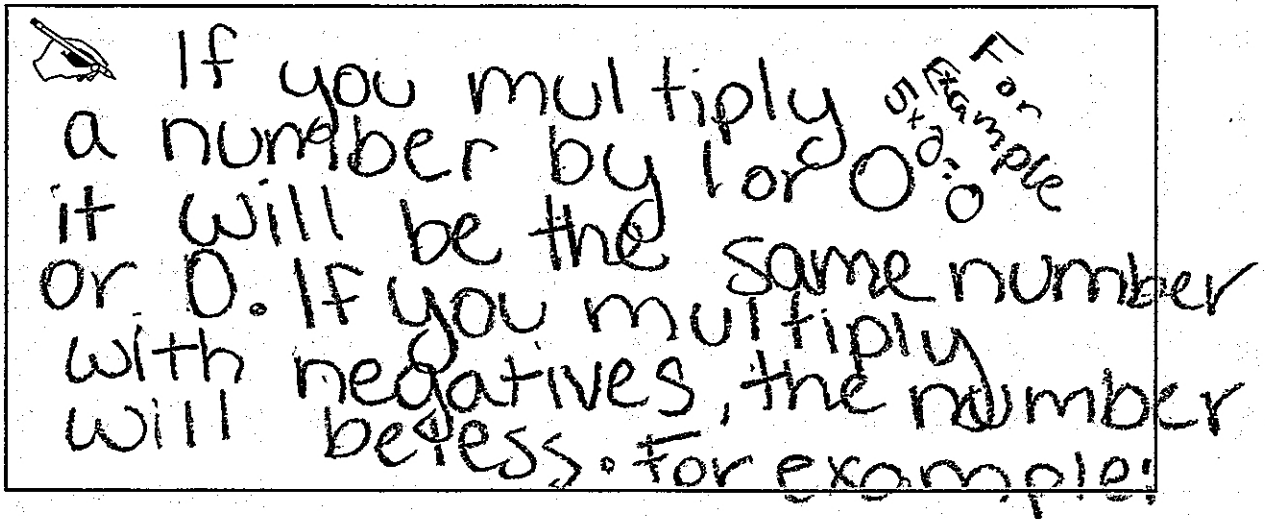 If you multiply
a number by 1 or 0
it will be the same number
or 0. If you multiply
with negatives, the number
will be less. For example:
For
Example
5x0=0